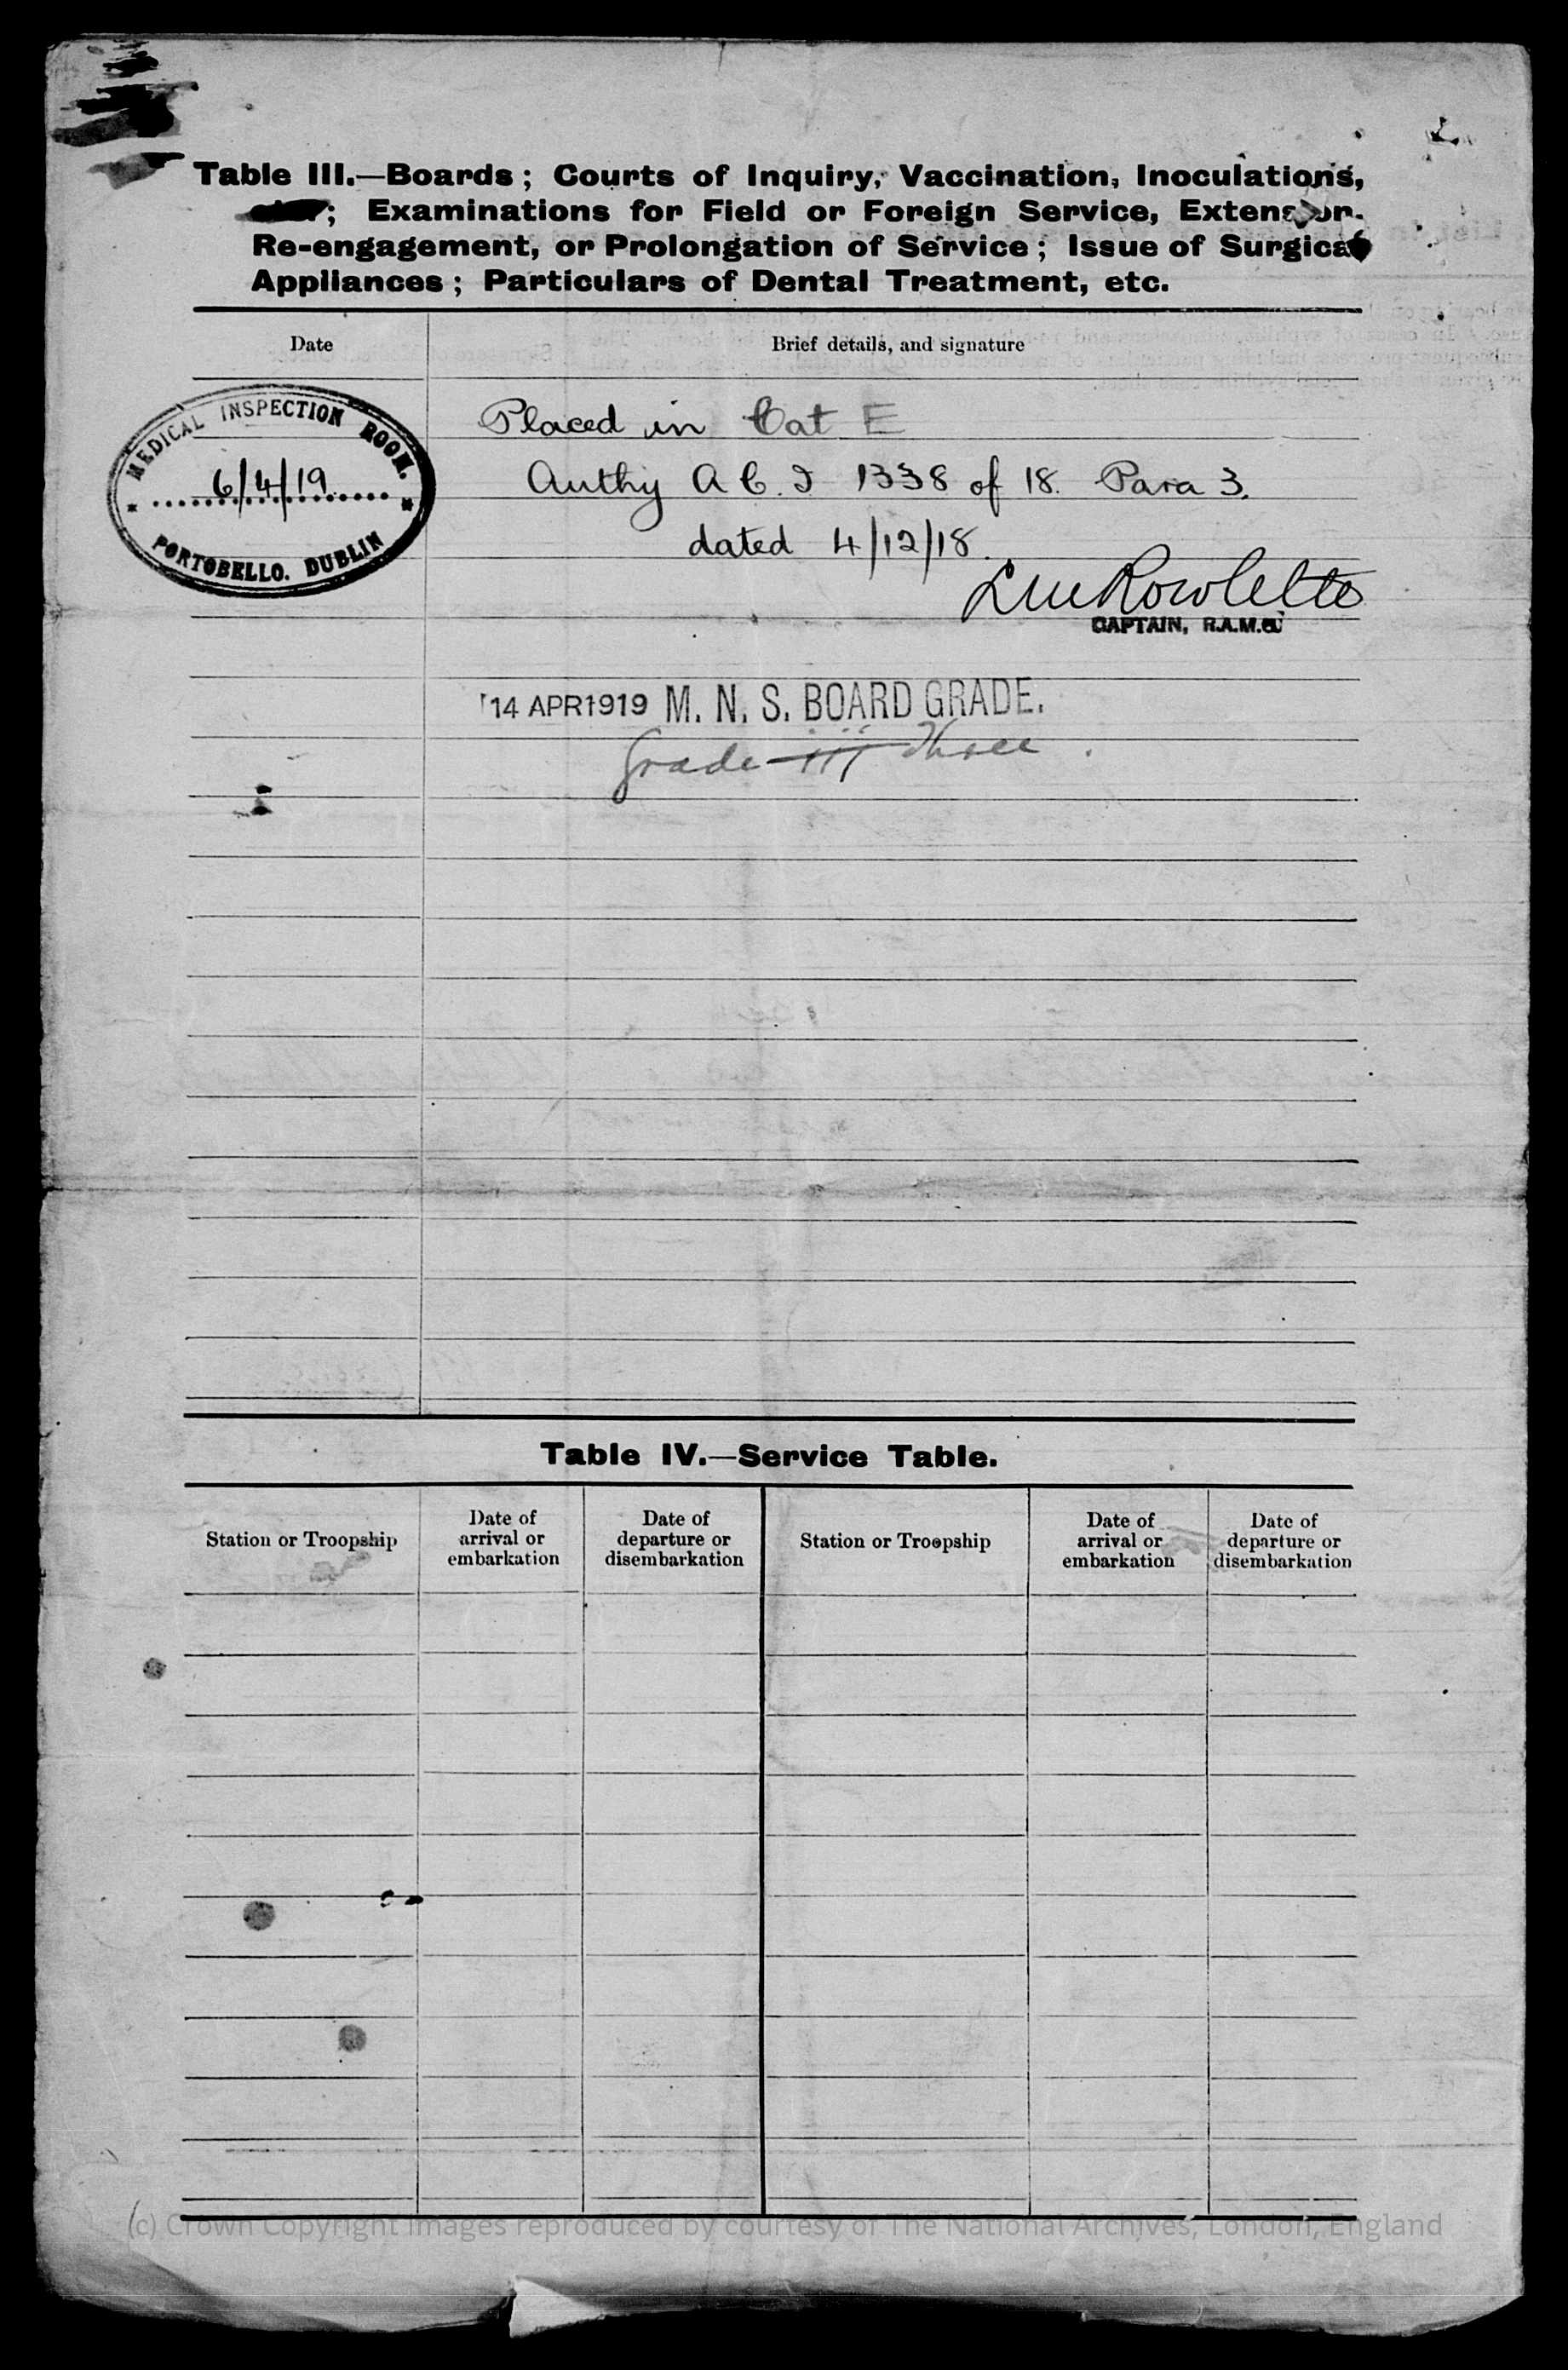 Table III.—Boards; Courts of Inquiry, Vaccination, Inoculations,
; Examinations for Field or Foreign Service,
Re-engagement, or Prolongation of Service; Issue of Surgical
Appliances; Particulars of Dental Treatment, etc.
Date
Brief details, and signature
MEDICAL INSPECTION ROOM.
6/4/19
PORTOBELLO. DUBLIN
Placed in Cat E
Authy A C. I 1338 of 18. Para 3.
dated 4/12/18.
Rowlette
CAPTAIN, R.A.M.C.
14 APR 1919 M. N. S. BOARD GRADE.
Grade iii Three.
Table IV.—Service Table.
Station or Troopship
Date of
arrival or
embarkation
Date of
departure or
disembarkation
Station or Troopship
Date of
arrival or
embarkation
Date of
departure or
disembarkation
(c) Crown Copyright Images reproduced by courtesy of The National Archives, London, England